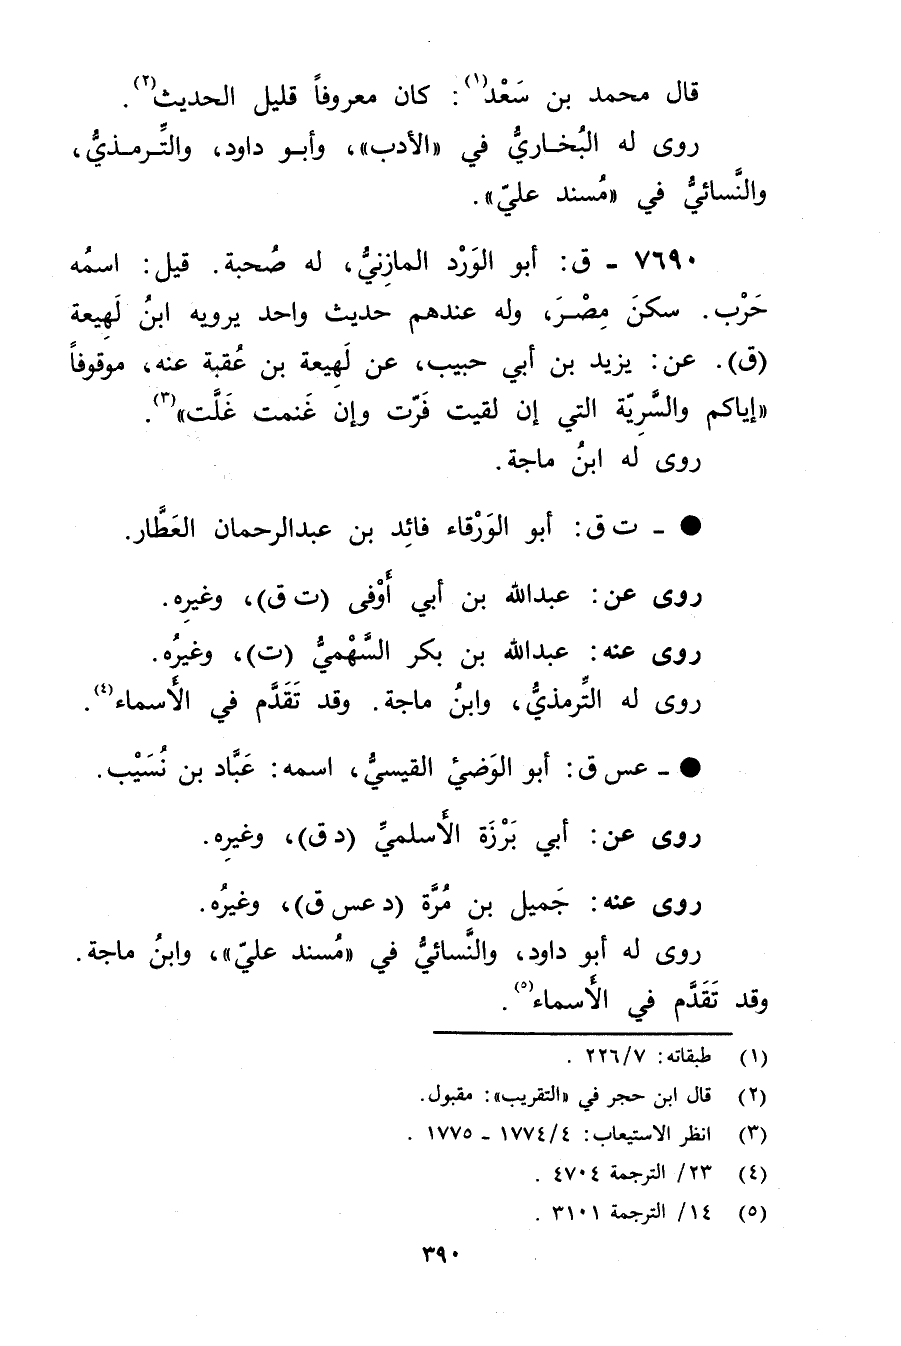 قال محمد بن سَعْد(١): كان معروفاً قليل الحديث(٢).
روى له البُخاريُّ في «الأدب»، وأبو داود، والتِّرمذيُّ،
والنَّسائيُّ في «مُسند عليّ».
٧٦٩٠ - ق: أبو الوَرْد المازِنيُّ، له صُحبة. قيل: اسمُه
حَرْب. سكنَ مِصْرَ، وله عندهم حديث واحد يرويه ابنُ لَهِيعة
(ق). عن: يزيد بن أبي حبيب، عن لَهِيعة بن عُقبة عنه، موقوفاً
«إياكم والسَّرِيّة التي إن لقيت فَرّت وإن غَنمت غَلَّت»(٣).
روى له ابنُ ماجة.
● - ت ق: أبو الوَرْقاء فائِد بن عبدالرحمان العَطَّار.
روى عن: عبدالله بن أبي أَوْفى (ت ق)، وغيرِه.
روى عنه: عبدالله بن بكر السَّهْميُّ (ت)، وغيرُه.
روى له التِّرمذيُّ، وابنُ ماجة. وقد تَقَدَّم في الأَسماء(٤).
● - عس ق: أبو الوَضيْ القيسيُّ، اسمه: عَبَّاد بن نُسَيْب.
روى عن: أبي بَرْزَة الأَسلميِّ (د ق)، وغيرِه.
روى عنه: جَميل بن مُرَّة (د عس ق)، وغيرُه.
روى له أبو داود، والنَّسائيُّ في «مُسند عليّ»، وابنُ ماجة.
وقد تَقَدَّم في الأَسماء(٥).
(١) طبقاته: ٢٢٦/٧ .
(٢) قال ابن حجر في «التقريب»: مقبول.
(٣) انظر الاستيعاب: ١٧٧٤/٤ - ١٧٧٥ .
(٤) ٢٣/ الترجمة ٤٧٠٤ .
(٥) ١٤/ الترجمة ٣١٠١ .
٣٩٠